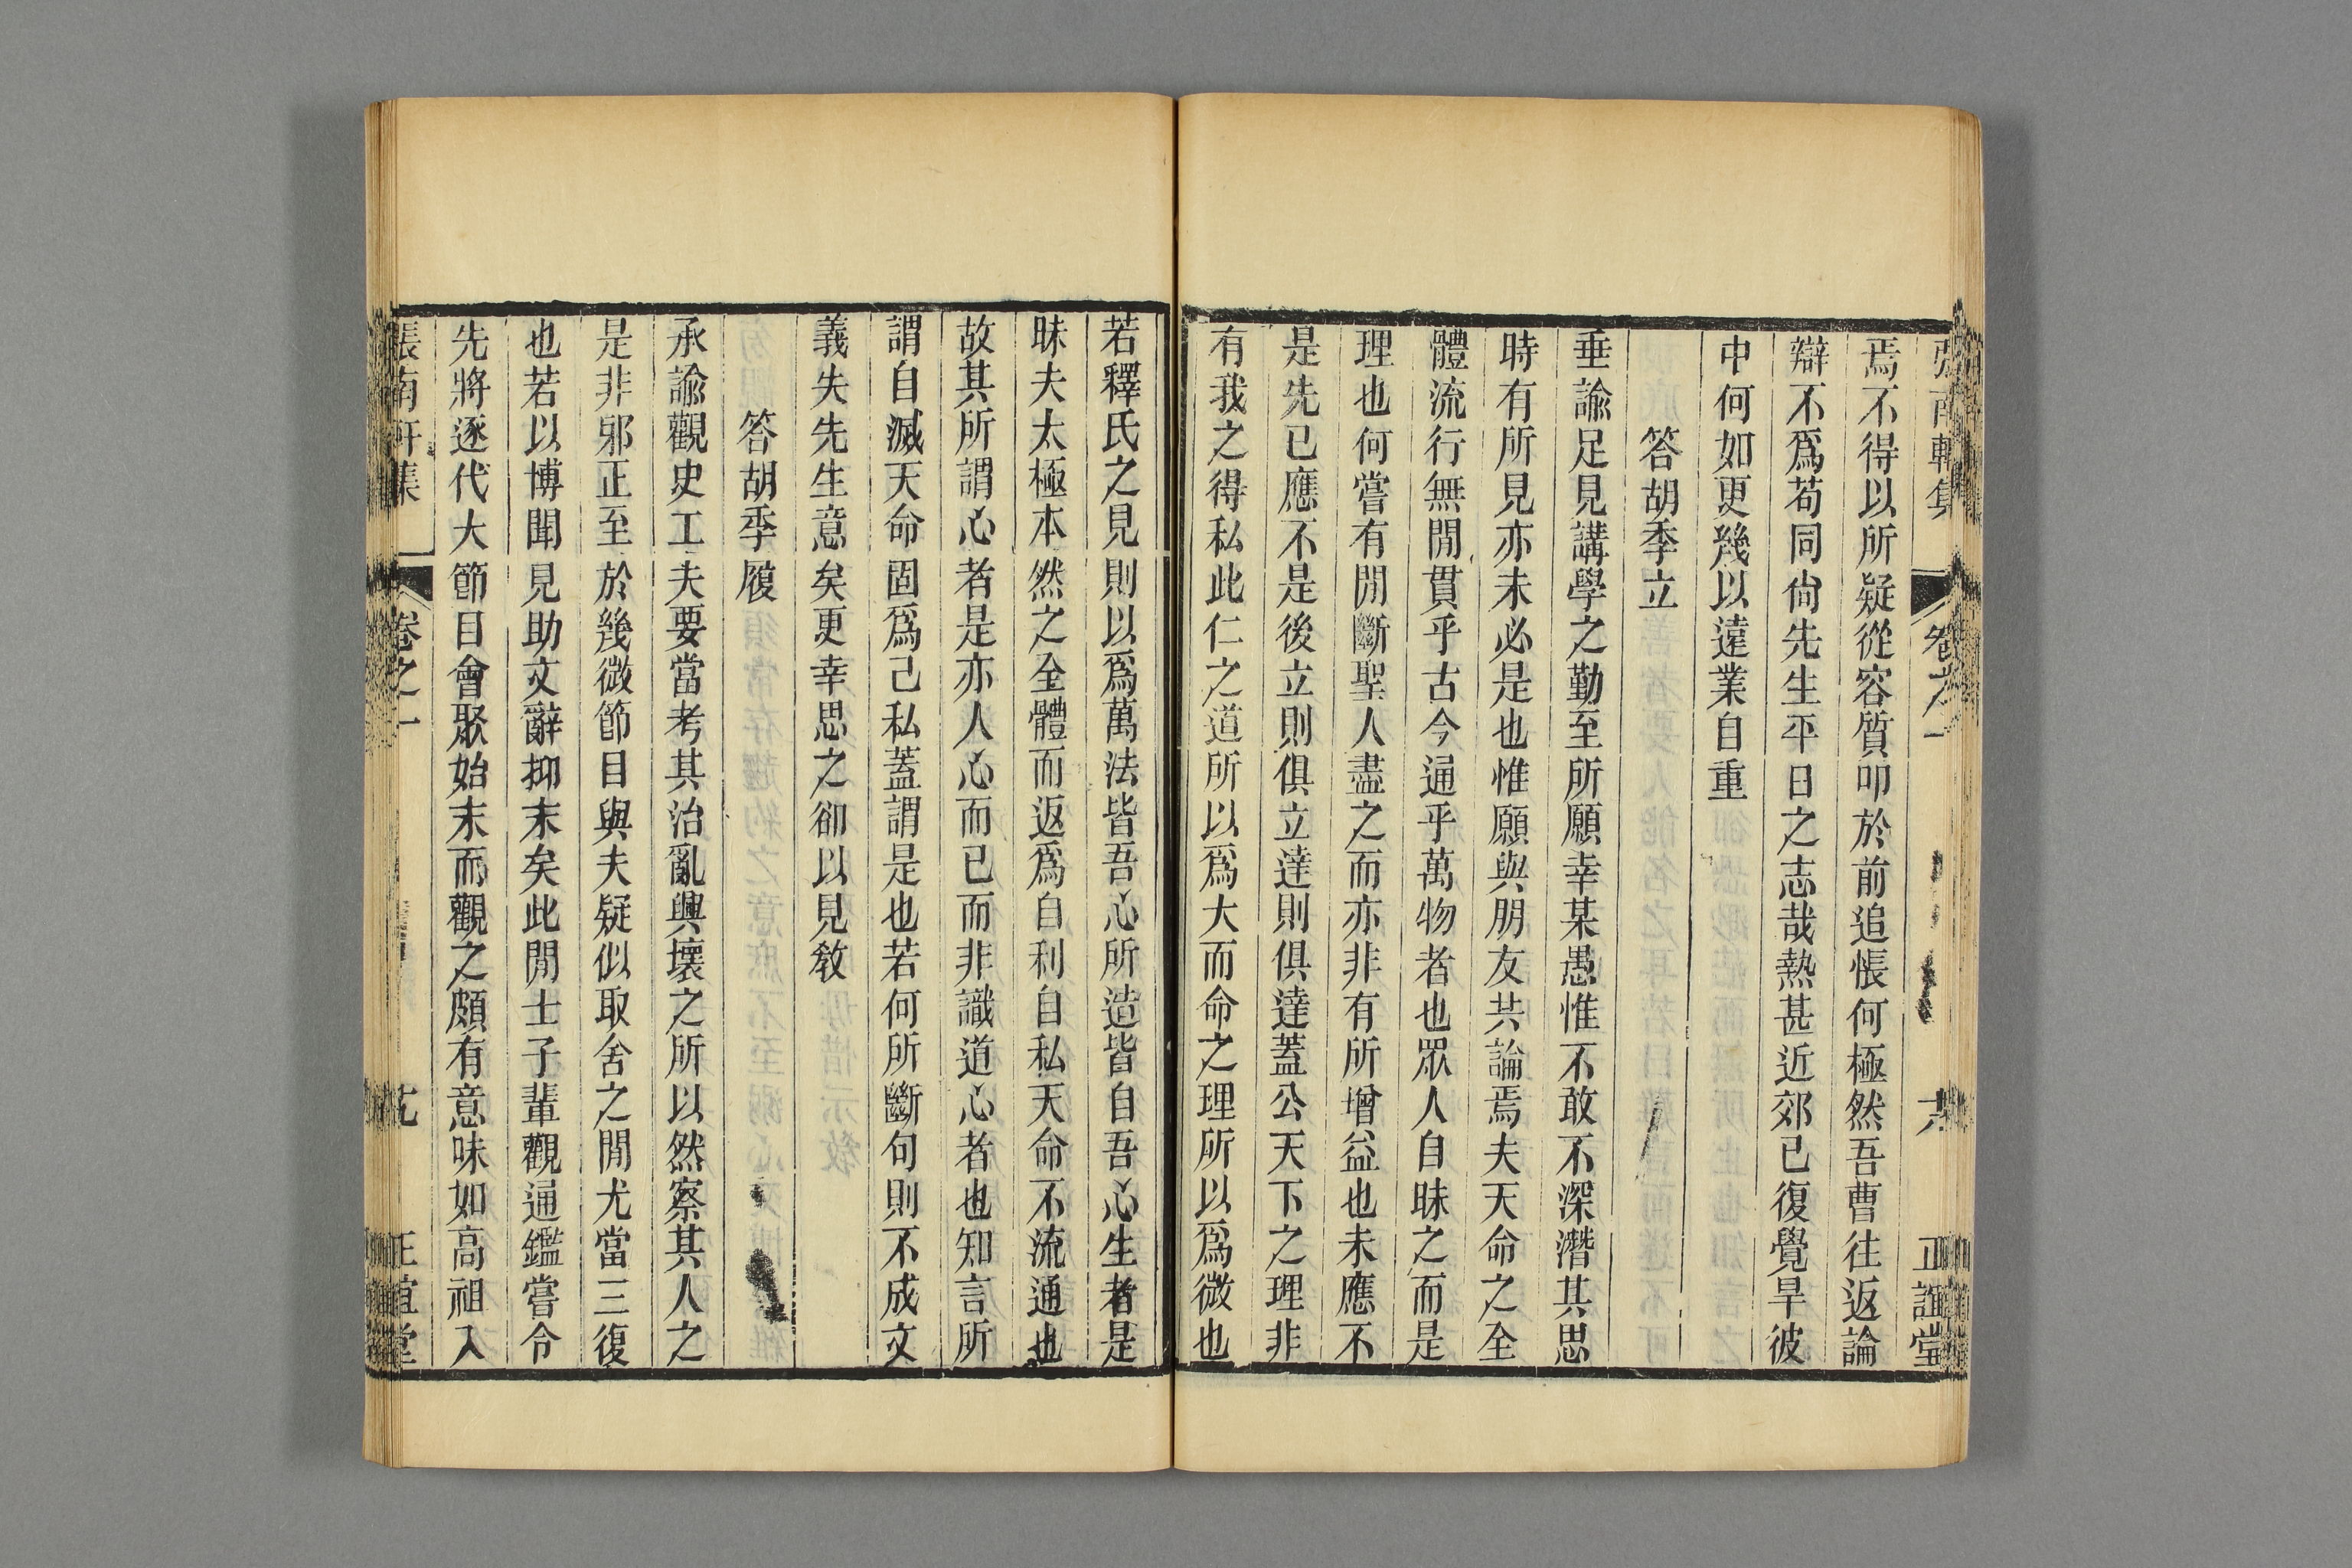 張南軒集 卷之一 六 正誼堂
焉不得以所疑從容質叩於前追悵何極然吾曹往返論
辯不爲苟同尙先生平日之志哉熱甚近郊已復覺旱彼
中何如更幾以遠業自重
答胡季立
垂諭足見講學之勤至所願幸某愚惟不敢不深潛其思
時有所見亦未必是也惟願與朋友共論焉夫天命之全
體流行無閒貫乎古今通乎萬物者也眾人自昧之而是
理也何嘗有閒斷聖人盡之而亦非有所增益也未應不
是先已應不是後立則俱立達則俱達蓋公天下之理非
有我之得私此仁之道所以爲大而命之理所以爲微也
若釋氏之見則以爲萬法皆吾心所造皆自吾心生者是
昧夫太極本然之全體而返爲自利自私天命不流通也
故其所謂心者是亦人心而已而非識道心者也知言所
謂自滅天命固爲己私蓋謂是也若何所斷句則不成文
義失先生意矣更幸思之卻以見敎
答胡季履
承諭觀史工夫要當考其治亂興壞之所以然察其人之
是非邪正至於幾微節目與夫疑似取舍之閒尤當三復
也若以博聞見助文辭抑末矣此閒士子輩觀通鑑嘗令
先將逐代大節目會聚始末而觀之頗有意味如高祖入
張南軒集 卷之一 正誼堂